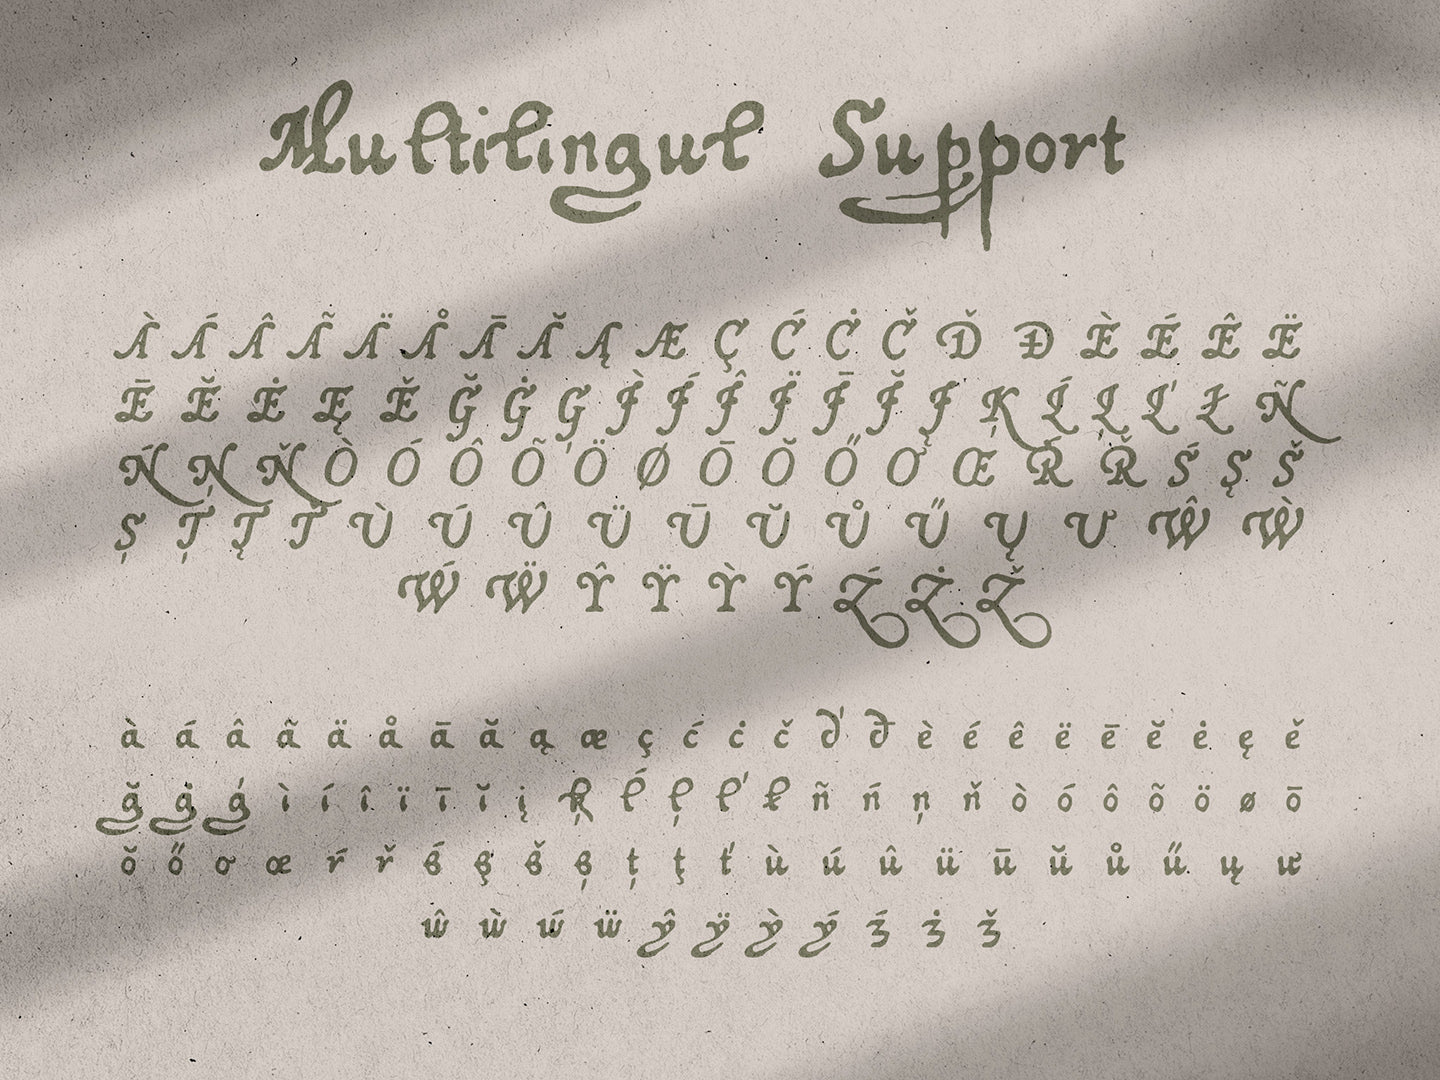 Multilingul Support
À Á Â Ã Ä Å Ā Ă Ą Æ Ç Ć Ċ Č Ď Đ È É Ê Ë
Ē Ĕ Ė Ę Ě Ğ Ġ Ģ Ì Í Î Ï Ī Ĭ Į Ķ Ĺ Ļ Ľ Ł Ñ
Ń Ņ Ň Ò Ó Ô Õ Ö Ø Ō Ŏ Ő Ơ Œ Ŕ Ř Ś Ş Š
Ș Ț Ţ Ť Ù Ú Û Ü Ū Ŭ Ů Ű Ų Ư Ŵ Ẁ
Ẃ Ẅ Ŷ Ÿ Ỳ Ý Ź Ż Ž
à á â ã ä å ā ă ą æ ç ć ċ č ď đ è é ê ë ē ĕ ė ę ě
ğ ġ ģ ì í î ï ī ĭ į ķ ĺ ļ ľ ł ñ ń ņ ň ò ó ô õ ö ø ō
ŏ ő ơ œ ŕ ř ś ş š ș ț ţ ť ù ú û ü ū ŭ ů ű ų ư
ŵ ẁ ẃ ẅ ŷ ÿ ỳ ý ź ż ž